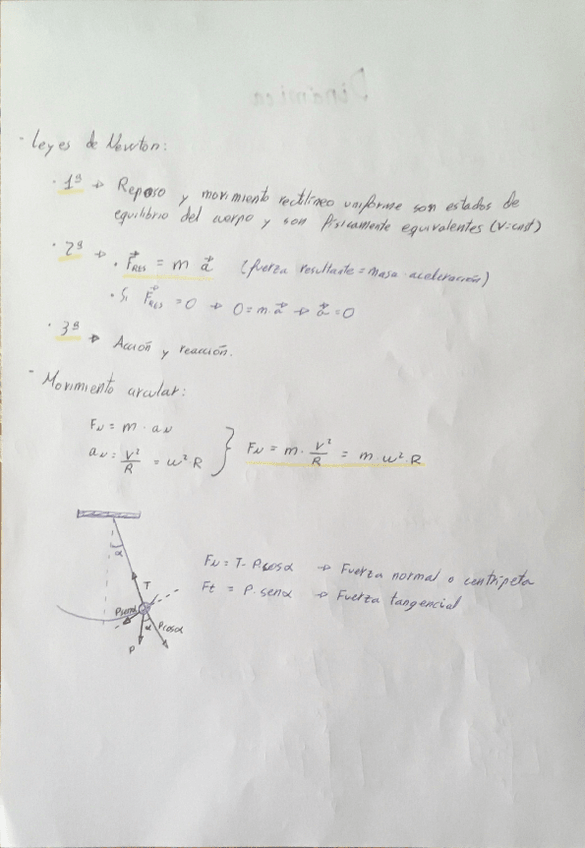 Dinámica
- Leyes de Newton:
· 1ª → Reposo y movimiento rectilíneo uniforme son estados de
equilibrio del cuerpo y son físicamente equivalentes (V=cnst)
· 2ª → · F⃗RES = m a⃗ (fuerza resultante = masa · aceleración)
· Si F⃗RES = 0 → 0 = m · a⃗ → a⃗ = 0
· 3ª → Acción y reacción.
- Movimiento circular:
FN = m · aN
aN = V²/R = ω² R } FN = m · V²/R = m · ω² · R
α
T
Psenα
α Pcosα
P
FN = T - Pcosα → Fuerza normal o centrípeta
Ft = P · senα → Fuerza tangencial